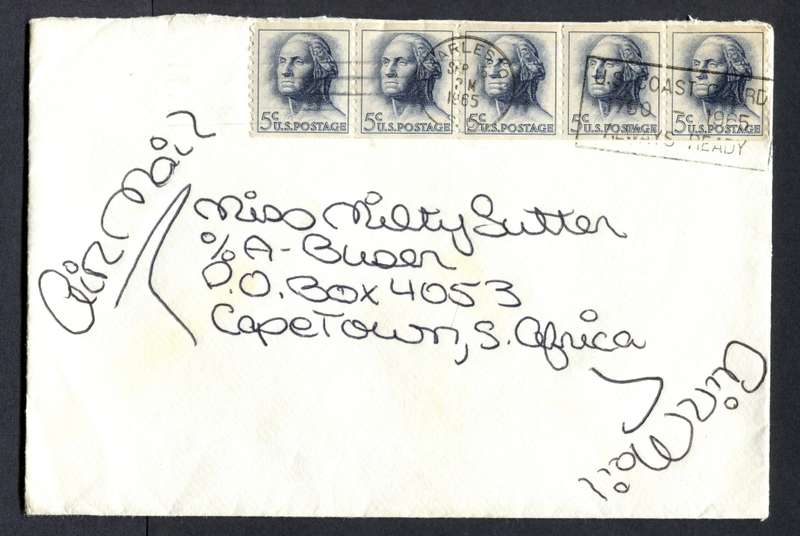 5c U.S.POSTAGE 5c U.S.POSTAGE 5c U.S.POSTAGE 5c U.S.POSTAGE 5c U.S.POSTAGE
SEP
PM
1965
U.S. COAST GUARD
1790 1965
ALWAYS READY
Air Mail
Miss Milty Sutter
c/o A-Buser
P.O. Box 4053
CapeTown, S. Africa
Air Mail